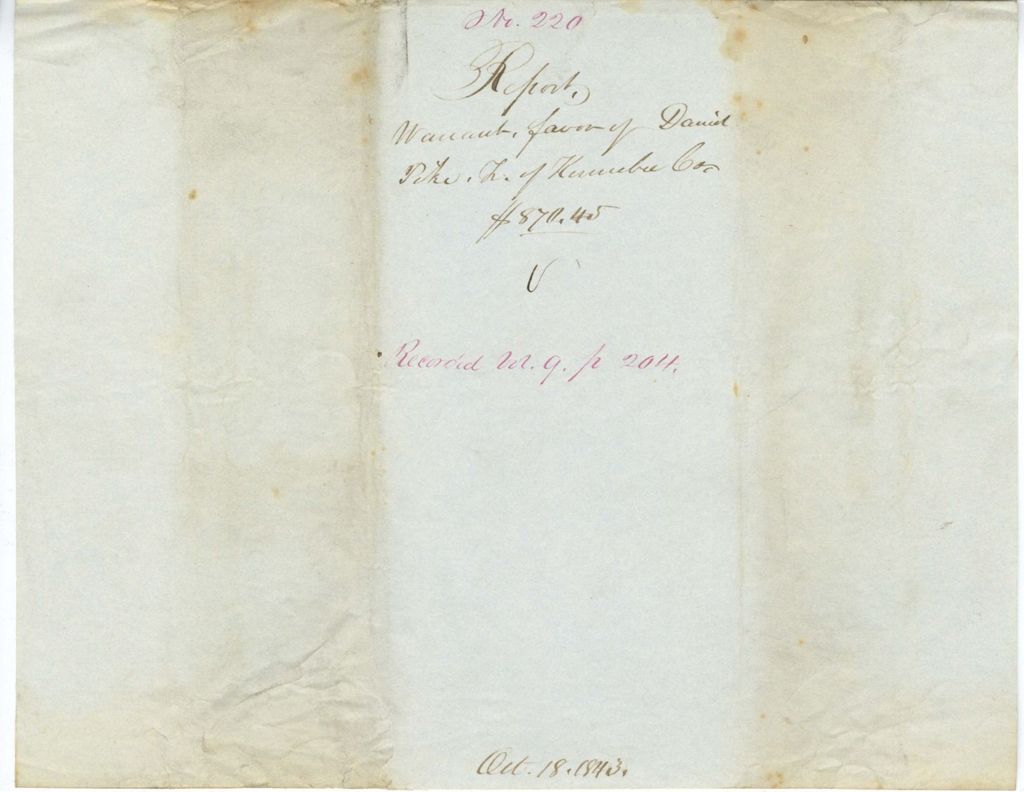 No. 220
Report,
Warrant, favor of Daniel
Pike. Tr. of Kennebec Co.
$870.45
Recorded Vol. 9. p 204.
Oct. 18. 1843.